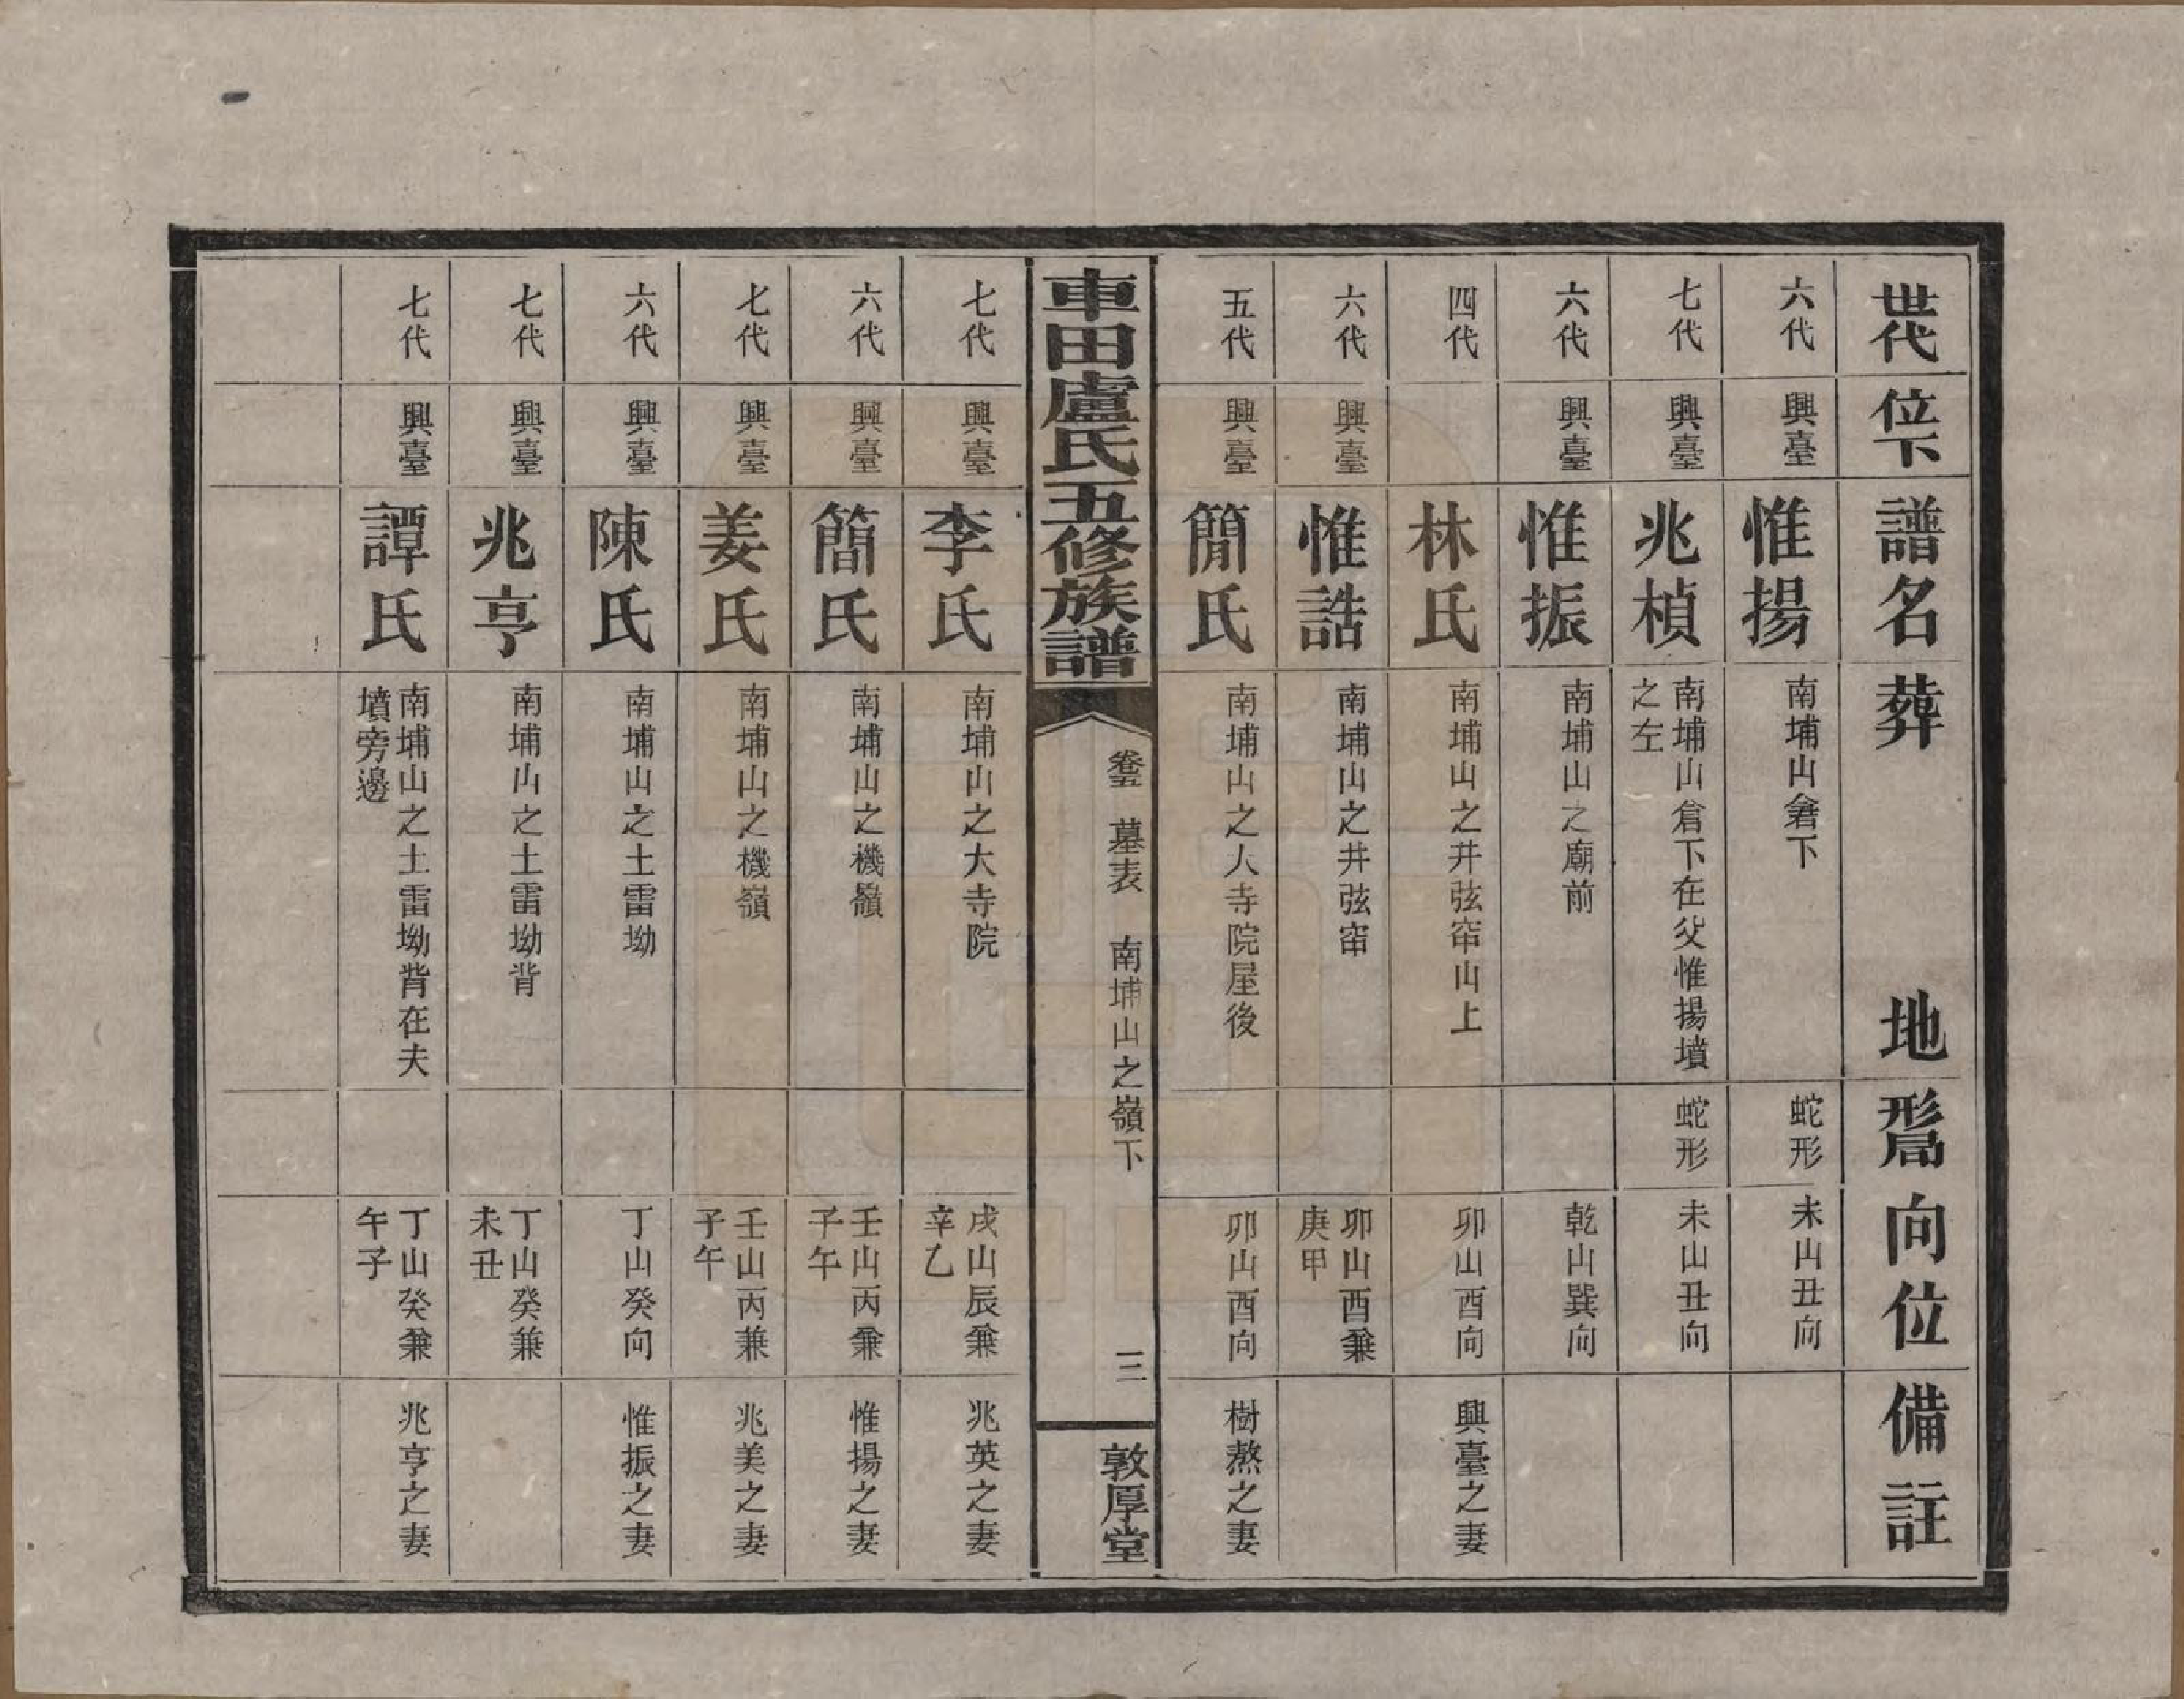 世代 位下 譜名 葬地 形局 向位 備註
六代 興臺 惟揚 南埔山倉下 蛇形 未山丑向
七代 興臺 兆楨 南埔山倉下在父惟揚墳之左 蛇形 未山丑向
六代 興臺 惟振 南埔山之廟前 乾山巽向
四代 林氏 南埔山之井弦窂山上 卯山酉向 興臺之妻
六代 興臺 惟誥 南埔山之井弦窂 卯山酉兼庚甲
五代 興臺 簡氏 南埔山之大寺院屋後 卯山酉向 樹熬之妻
車田盧氏五修族譜 卷五 墓表 南埔山之嶺下 三 敦厚堂
七代 興臺 李氏 南埔山之大寺院 戌山辰兼辛乙 兆英之妻
六代 興臺 簡氏 南埔山之機嶺 壬山丙兼子午 惟揚之妻
七代 興臺 姜氏 南埔山之機嶺 壬山丙兼子午 兆美之妻
六代 興臺 陳氏 南埔山之土雷坳 丁山癸向 惟振之妻
七代 興臺 兆亨 南埔山之土雷坳背 丁山癸兼未丑
七代 興臺 譚氏 南埔山之土雷坳背在夫墳旁邊 丁山癸兼午子 兆亨之妻